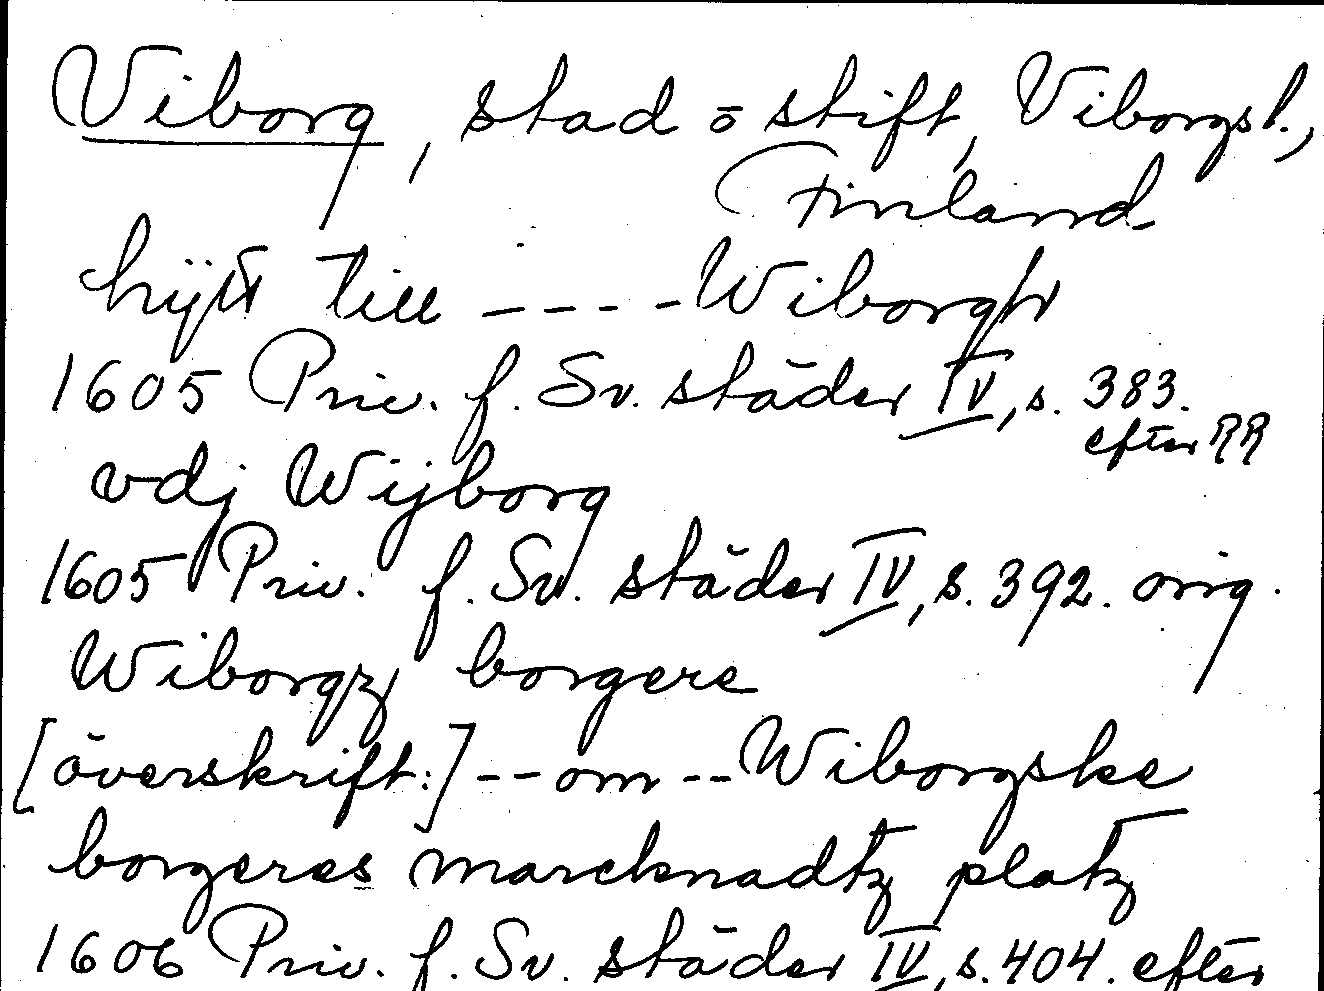 Viborg, stad o stift, Viborgsl.,
Finland
hijtt till ---- Wiborgh
1605 Priv. f. Sv. städer IV, s. 383.
efter RR
vdj Wijborg
1605 Priv. f. Sv. städer IV, s. 392. orig.
Wiborgz borgere
[överskrift:] -- om -- Wiborgske
borgeres marcknadtz platz
1606 Priv. f. Sv. städer IV, s. 404. efter